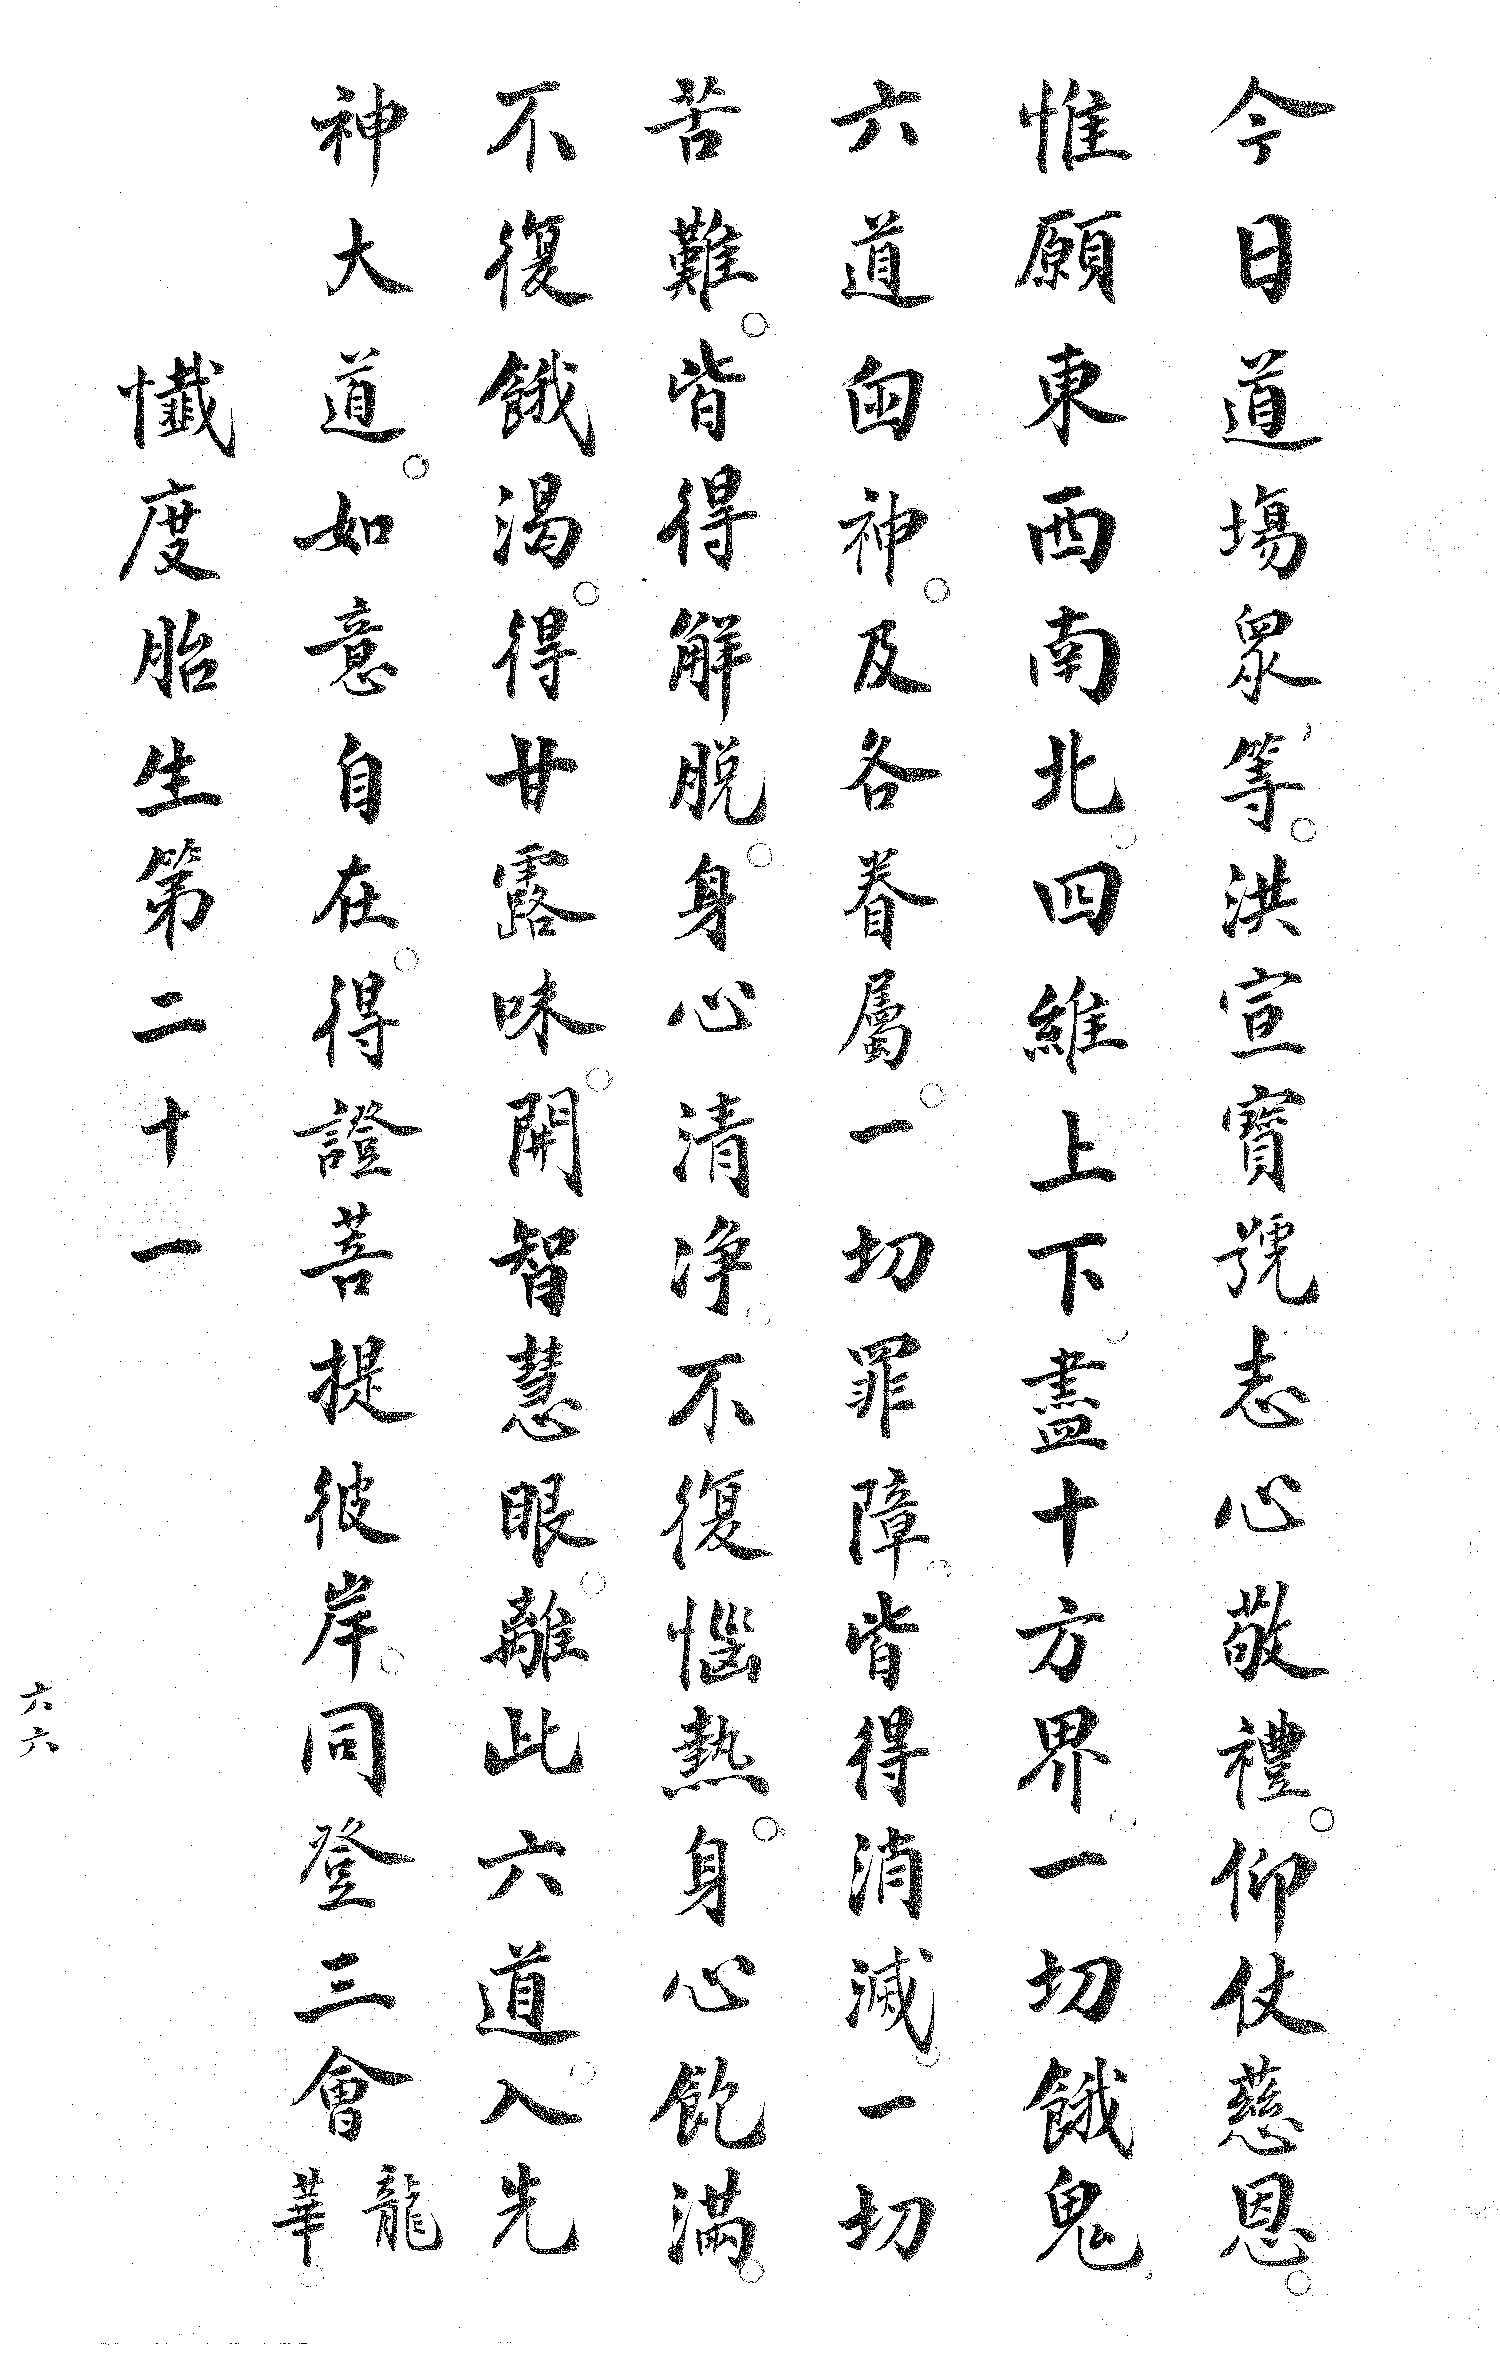 今日道場眾等。洪宣寶號志心敬禮。仰仗慈恩。
惟願東西南北。四維上下。盡十方界。一切餓鬼
六道囪神。及各眷屬。一切罪障。皆得消滅。一切
苦難。皆得解脫。身心清淨。不復惱熱。身心飽滿。
不復餓渴。得甘露味。開智慧眼。離此六道。入先
神大道。如意自在。得證菩提彼岸。同登三會龍華。
懺度胎生第二十一
六六